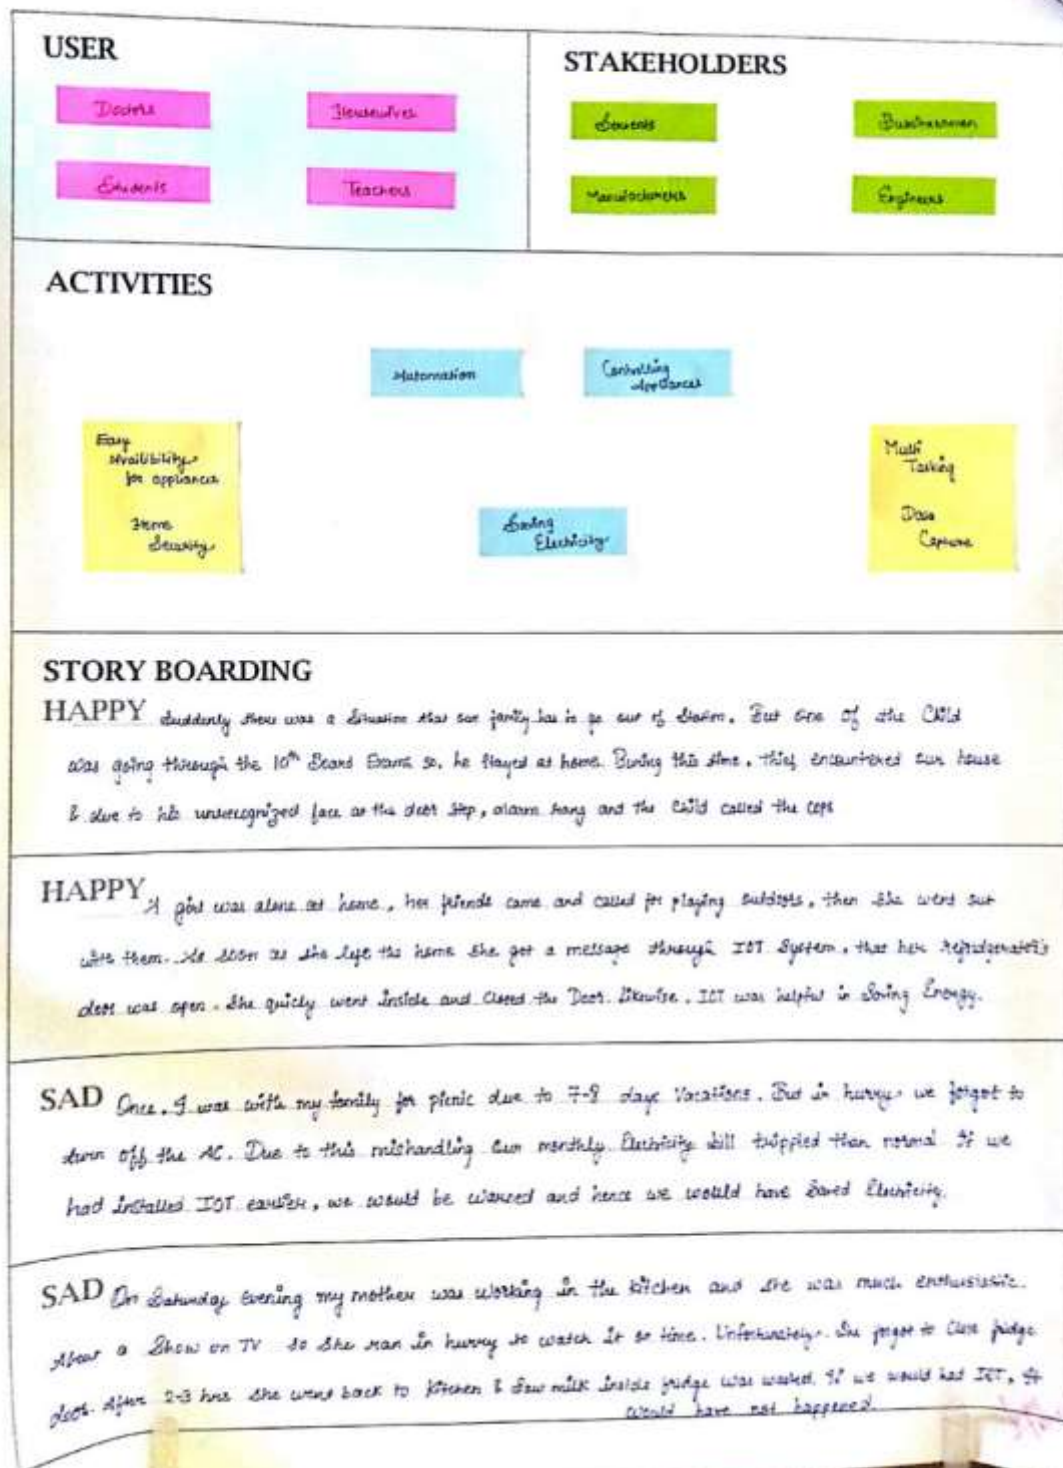 USER
Doctors
Housewives
Students
Teachers
STAKEHOLDERS
Bussinessmen
Manufacturers
Engineers
ACTIVITIES
Automation
Controlling
Appliances
Easy
Availibility
for appliances
Home
Security
Saving
Electricity
Multi
Tasking
Data
Capture
STORY BOARDING
HAPPY Suddenly there was a Situation that our family has to go out of Station. But One of the Child
was going through the 10th Board Exams so, he stayed at home. During this time, thief encountered our house
& due to his unrecognized face at the door step, alarm rang and the Child called the cops
HAPPY A girl was alone at home, her friends came and called for playing outdoors, then She went out
with them. As soon as she left the home She got a message through IOT System, that her Refridgerator's
door was open. She quicly went inside and Closed the Door. Likewise, IOT was helpful in Saving Energy.
SAD Once, I was with my family for picnic due to 7-8 days Vacations. But in hurry we forgot to
turn off the AC. Due to this mishandling our monthly Electricity bill trippled than normal If we
had installed IOT earlier, we would be warned and hence we would have Saved Electricity.
SAD On Saturday Evening my mother was working in the kitchen and she was much enthusiastic
About a Show on TV so She ran in hurry to watch it on time. Unfortunately, She forgot to Close fridge
door. After 2-3 hrs She went back to Kitchen & Saw milk inside fridge was wasted. If we would had IOT, it
would have not happened.